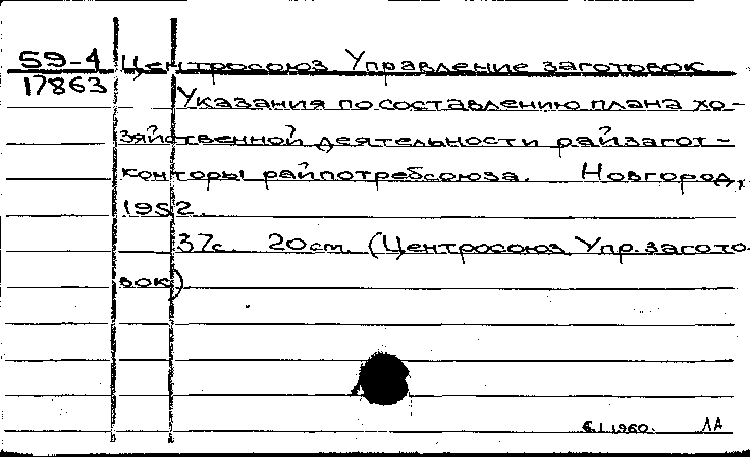 59-4 Центросоюз Управление заготовок
17863
Указания по составлению плана хо-
зяйственной деятельности райзагот-
конторы райпотребсоюза. Новгород,
1952.
37с. 20 cm. (Центросоюз Упр. загото
вок)
6.I.1960. ЛА